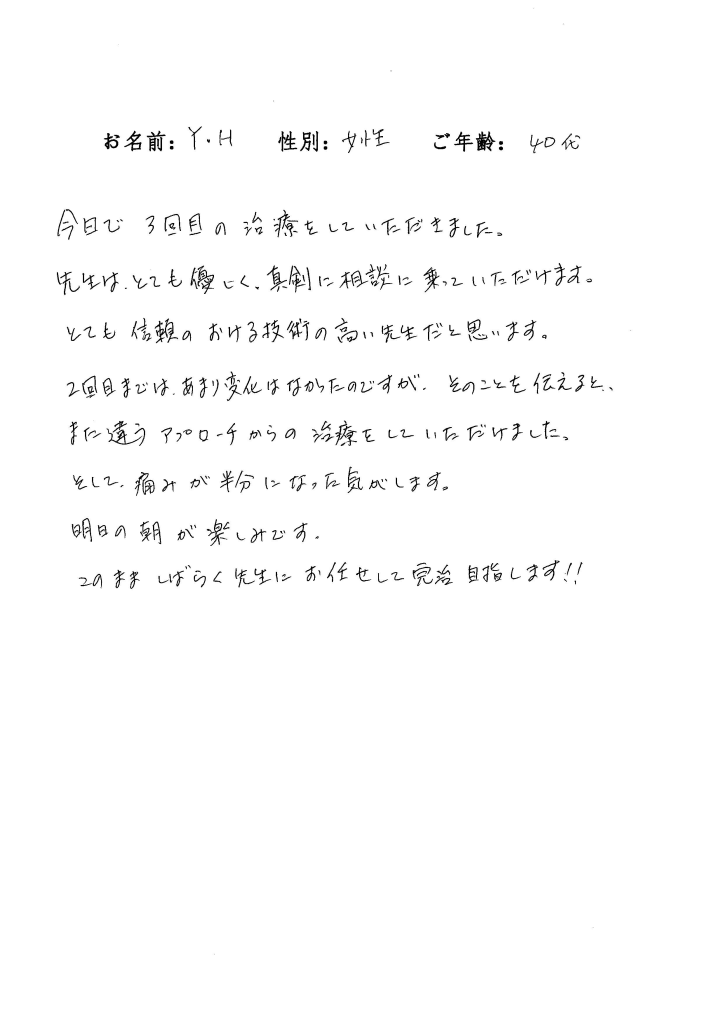 お名前: Y・H 性別: 女性 ご年齢: 40代
今日で 3回目の治療をしていただきました。
先生は、とても優しく、真剣に相談に乗っていただけます。
とても信頼のおける技術の高い先生だと思います。
2回目までは、あまり変化はなかったのですが、そのことを伝えると、
また違うアプローチからの治療をしていただけました。
そして、痛みが半分になった気がします。
明日の朝が楽しみです。
このまましばらく先生にお任せして完治目指します!!